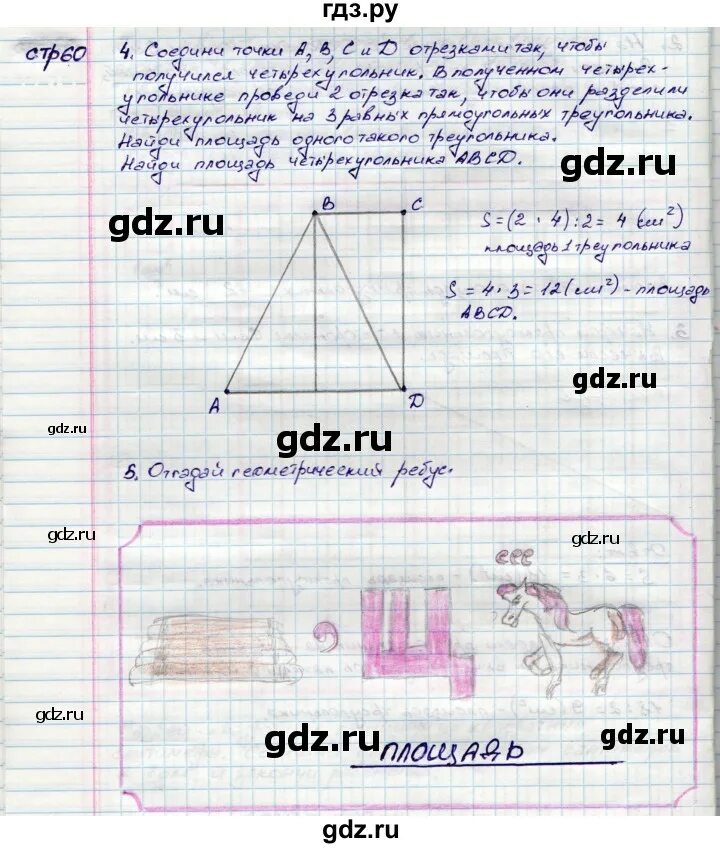 гдз.ру
стр60
4. Соедини точки A, B, C и D отрезками так, чтобы
получился четырехугольник. В полученном четырех-
угольнике проведи 2 отрезка так, чтобы они разделили
четырехугольник на 3 равных прямоугольных треугольника.
Найди площадь одного такого треугольника.
Найди площадь четырехугольника ABCD.
gdz.ru
gdz.ru
B
C
S = (2 · 4) : 2 = 4 (см²)
площадь 1 треугольника
S = 4 · 3 = 12 (см²) - площадь
ABCD.
gdz.ru
A
D
gdz.ru
gdz.ru
5. Отгадай геометрический ребус.
gdz.ru
gdz.ru
ссс
gdz.ru
, Щ
gdz.ru
gdz.ru
gdz.ru
площадь
gdz.ru